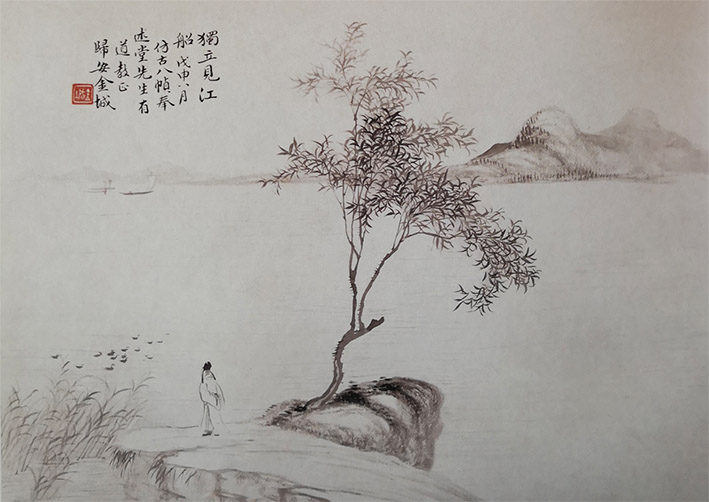 獨立見江
船戊申八月
仿古八幀奉
述堂先生有
道教正
歸安金城